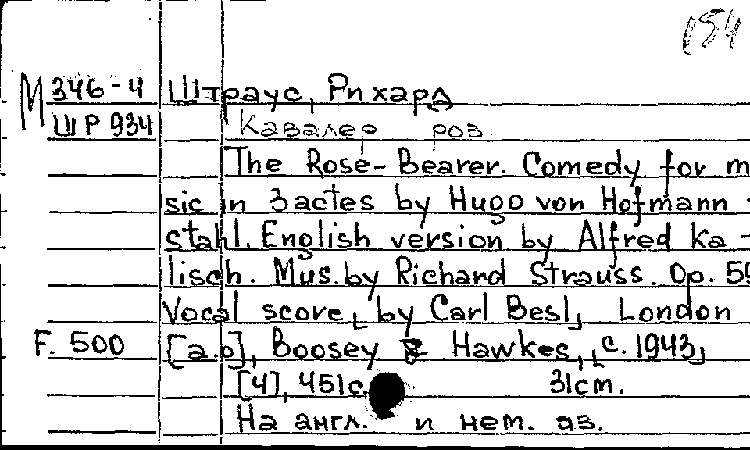 154
М 346-4 Штраус, Рихард
ШР 934 Кавалер роз
The Rose-Bearer. Comedy for m
sic in 3 actes by Hugo von Hofmann -
stahl. English version by Alfred Ka -
lisch. Mus. by Richard Strauss. Op. 59
Vocal score, by Carl Besl, London
F. 500 [a.o], Boosey & Hawkes, c. 1943,
[4], 451c. 31cm.
На англ. и нем. яз.